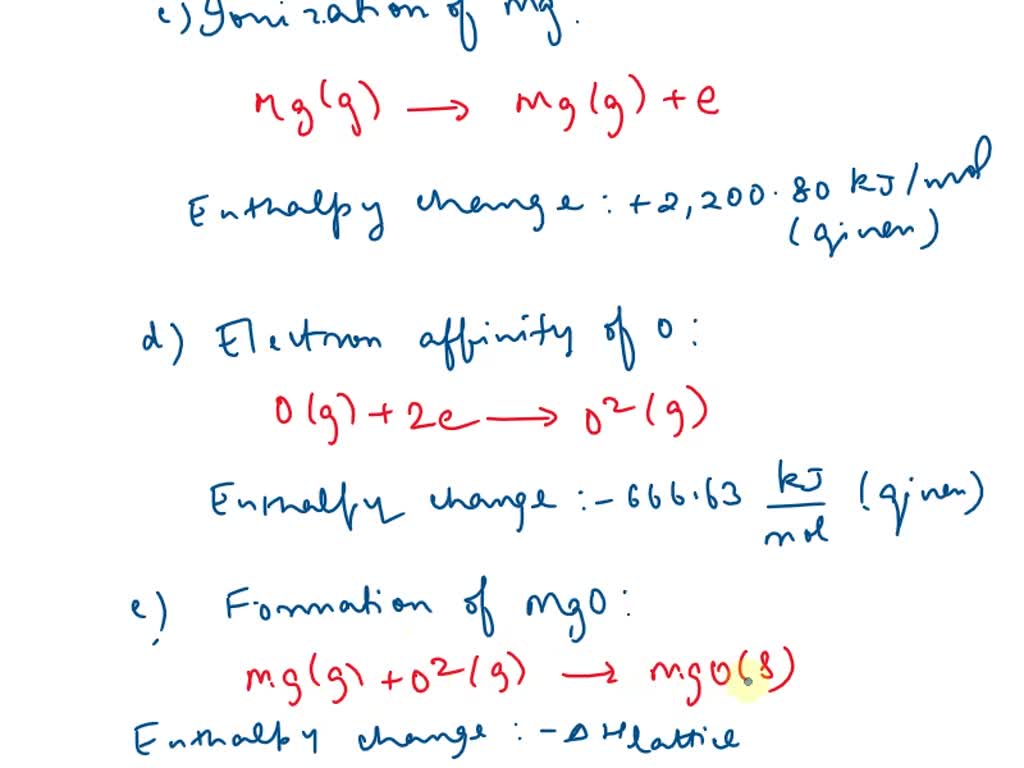 c) Ionization of Mg.
Mg(g) → Mg(g) + e
Enthalpy change : +2,200.80 kJ/mol
(given)
d) Electron affinity of O:
O(g) + 2e → O²(g)
Enthalpy change : -666.63 kJ/mol (given)
e) Formation of MgO:
Mg(g) + O²(g) → MgO(s)
Enthalpy change : -ΔHlattice